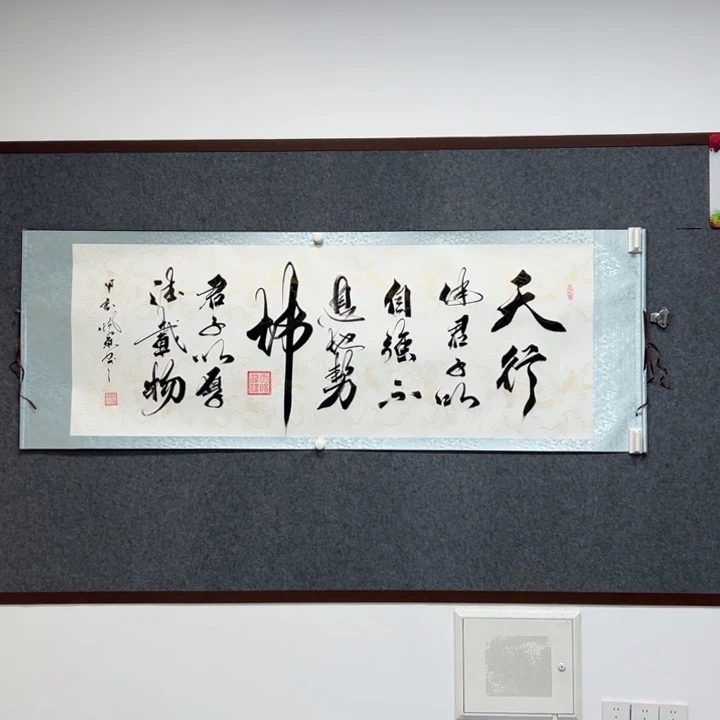 天行
健君子以
自強不
息地勢
坤
君子以厚
德載物